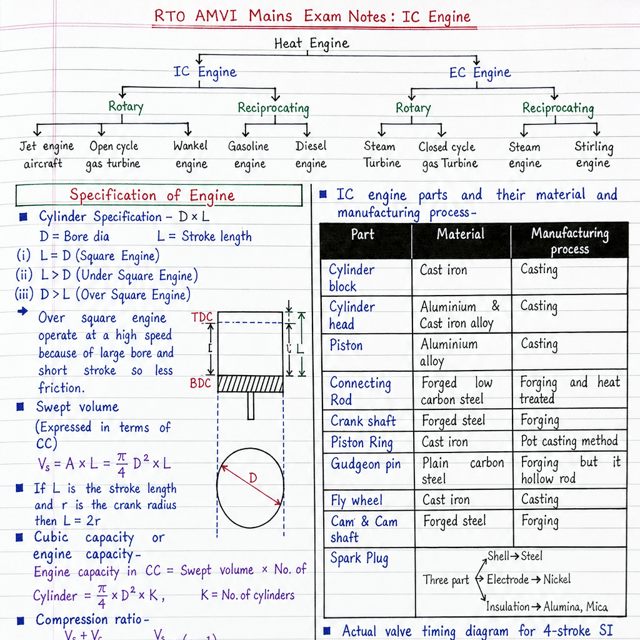 RTO AMVI Mains Exam Notes: IC Engine
Heat Engine
IC Engine
EC Engine
Rotary
Reciprocating
Rotary
Reciprocating
Jet engine aircraft
Open cycle gas turbine
Wankel engine
Gasoline engine
Diesel engine
Steam Turbine
Closed cycle gas Turbine
Steam engine
Stirling engine
Specification of Engine
■ Cylinder Specification – D × L
D = Bore dia L = Stroke length
(i) L = D (Square Engine)
(ii) L > D (Under Square Engine)
(iii) D > L (Over Square Engine)
→ Over square engine
operate at a high speed
because of large bore and
short stroke so less
friction.
TDC
BDC
L
D
■ Swept volume
(Expressed in terms of
CC)
Vs = A × L = π/4 D² × L
■ If L is the stroke length
and r is the crank radius
then L = 2r
■ Cubic capacity or
engine capacity–
Engine capacity in CC = Swept volume × No. of
Cylinder = π/4 × D² × K, K = No. of cylinders
■ Compression ratio–
■ IC engine parts and their material and
manufacturing process–
Part Material Manufacturing process
Cylinder block Cast iron Casting
Cylinder head Aluminium & Cast iron alloy Casting
Piston Aluminium alloy Casting
Connecting Rod Forged low carbon steel Forging and heat treated
Crank shaft Forged steel Forging
Piston Ring Cast iron Pot casting method
Gudgeon pin Plain carbon steel Forging but it hollow rod
Fly wheel Cast iron Casting
Cam & Cam shaft Forged steel Forging
Spark Plug
Three part
Shell → Steel
Electrode → Nickel
Insulation → Alumina, Mica
■ Actual valve timing diagram for 4-stroke SI